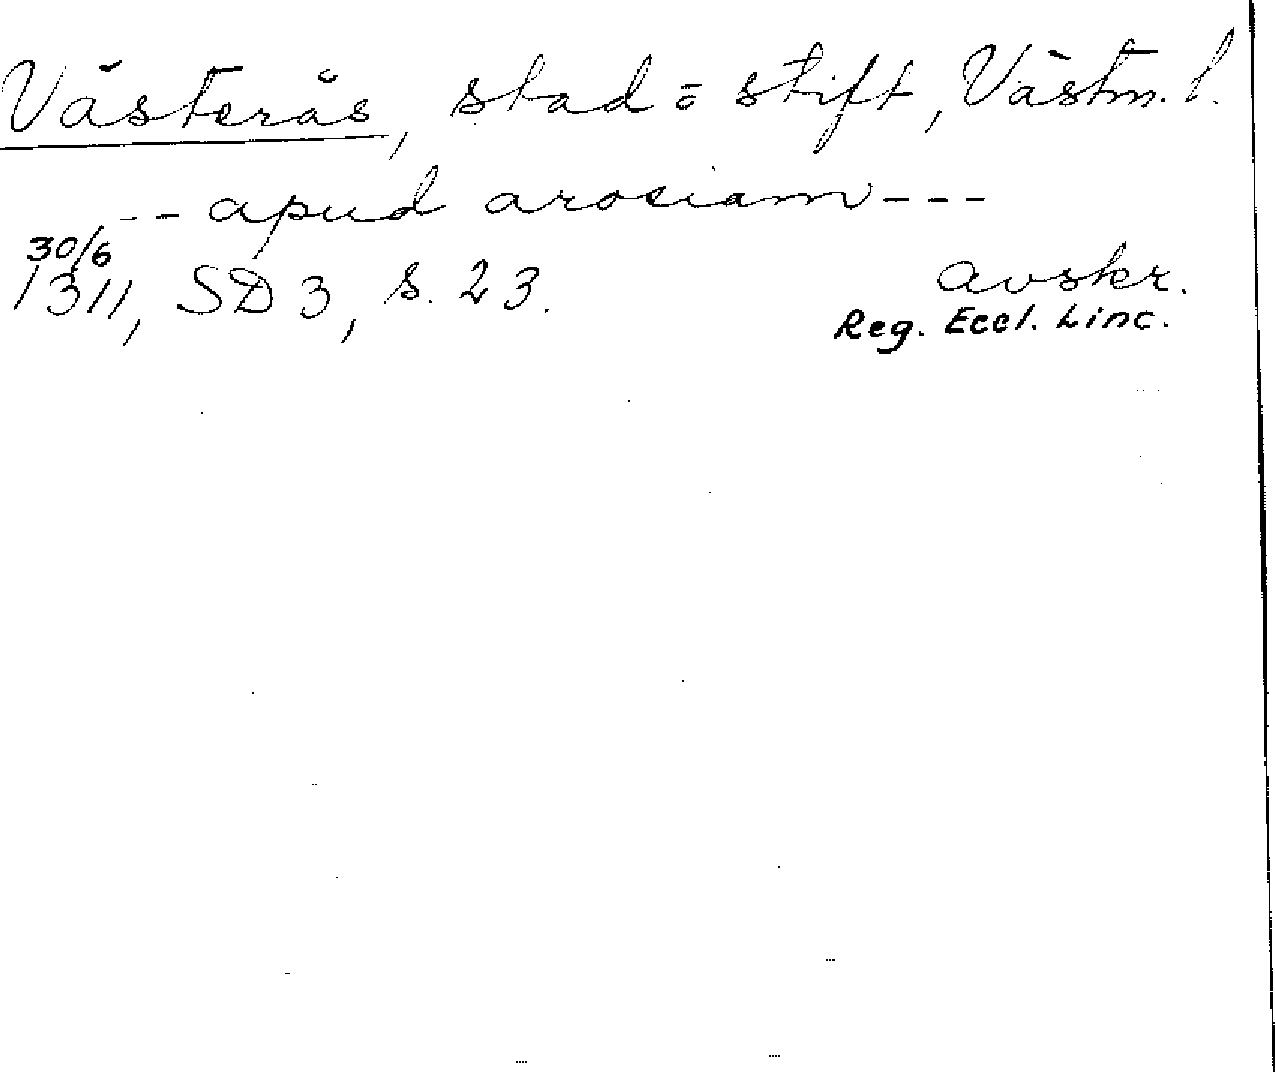 Västerås, stad o stift, Västm. l.
-- apud arosiam ---
30/6
1311, SD 3, s. 23.
avskr.
Reg. Eccl. Linc.